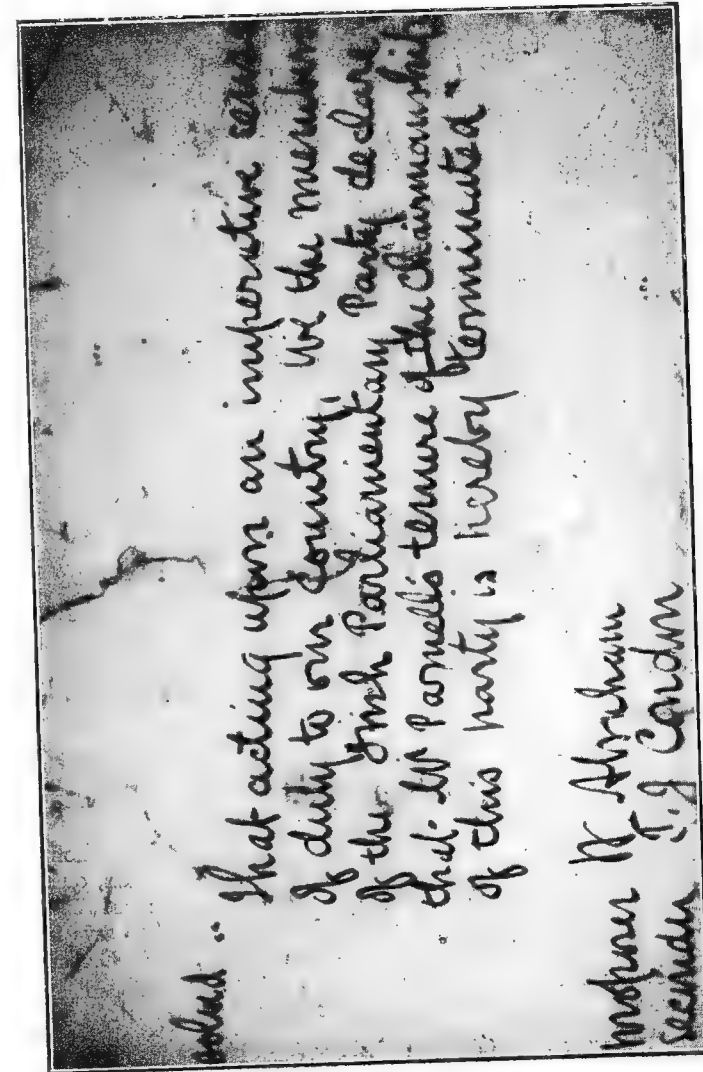 olved :-
That acting upon an imperative sense
of duty to our Country, We the members
of the Irish Parliamentary Party declare
that Mr Parnell's tenure of the Chairmanship
of this party is hereby terminated -
Moposer W Abraham
Seconder T. J Condon